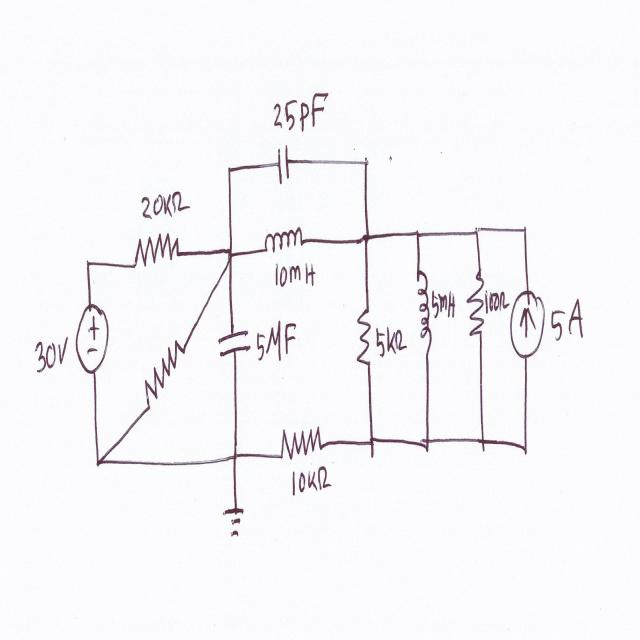 25pF
20KΩ
10mH
30V
+
-
5MF
5KΩ
5mH
100Ω
5A
10KΩ